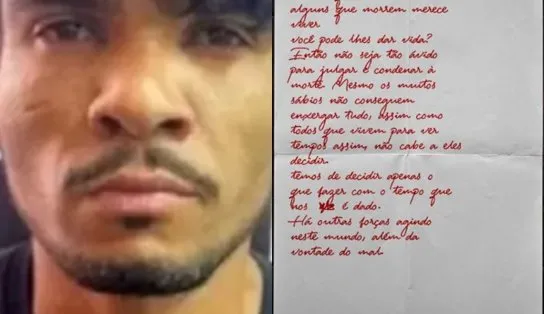 alguns que morrem merece
viver
você pode lhes dar vida?
Então não seja tão ávido
para julgar e condenar à
morte. Mesmo os muitos
sábios não conseguem
enxergar tudo, assim como
todos que vivem para ver
tempos assim, não cabe a eles
decidir.
temos de decidir apenas o
que fazer com o tempo que
nos é dado.
Há outras forças agindo
neste mundo, além da
vontade do mal.